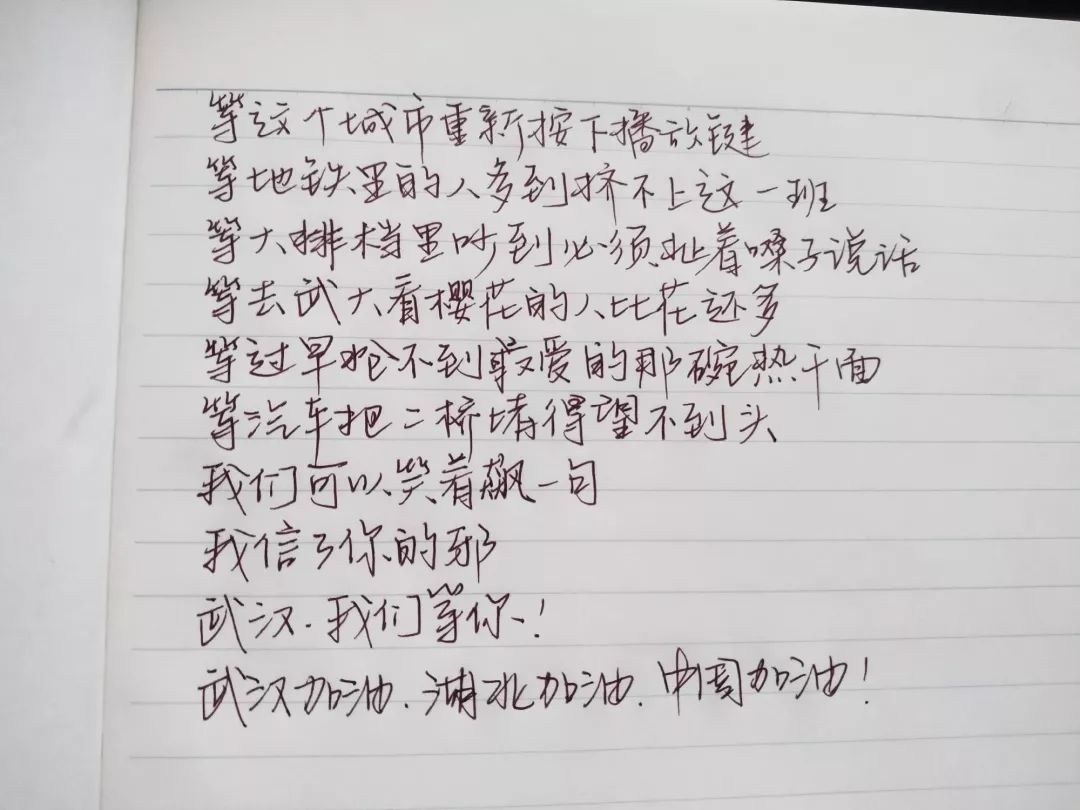 等这个城市重新按下播放键
等地铁里的人多到挤不上这一班
等大排档里吵到必须扯着嗓子说话
等去武大看樱花的人比花还多
等过早抢不到最爱的那碗热干面
等汽车把二桥堵得望不到头
我们可以笑着飙一句
我信了你的邪
武汉.我们等你!
武汉加油.湖北加油.中国加油!